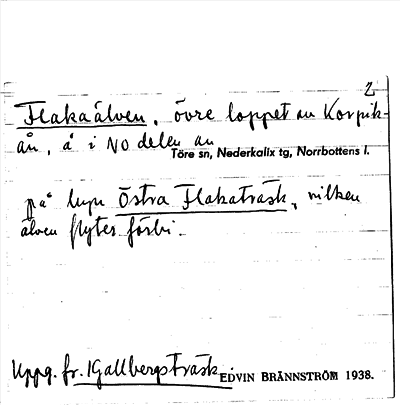 2
Flakaälven, övre loppet av Korpik-
ån, å i NO delen av
Töre sn, Nederkalix tg, Norrbottens l.
på Östra Flakaträsk, vilken
älven flyter förbi.
Uppg. fr. Gallbergsträsk. EDVIN BRÄNNSTRÖM 1938.